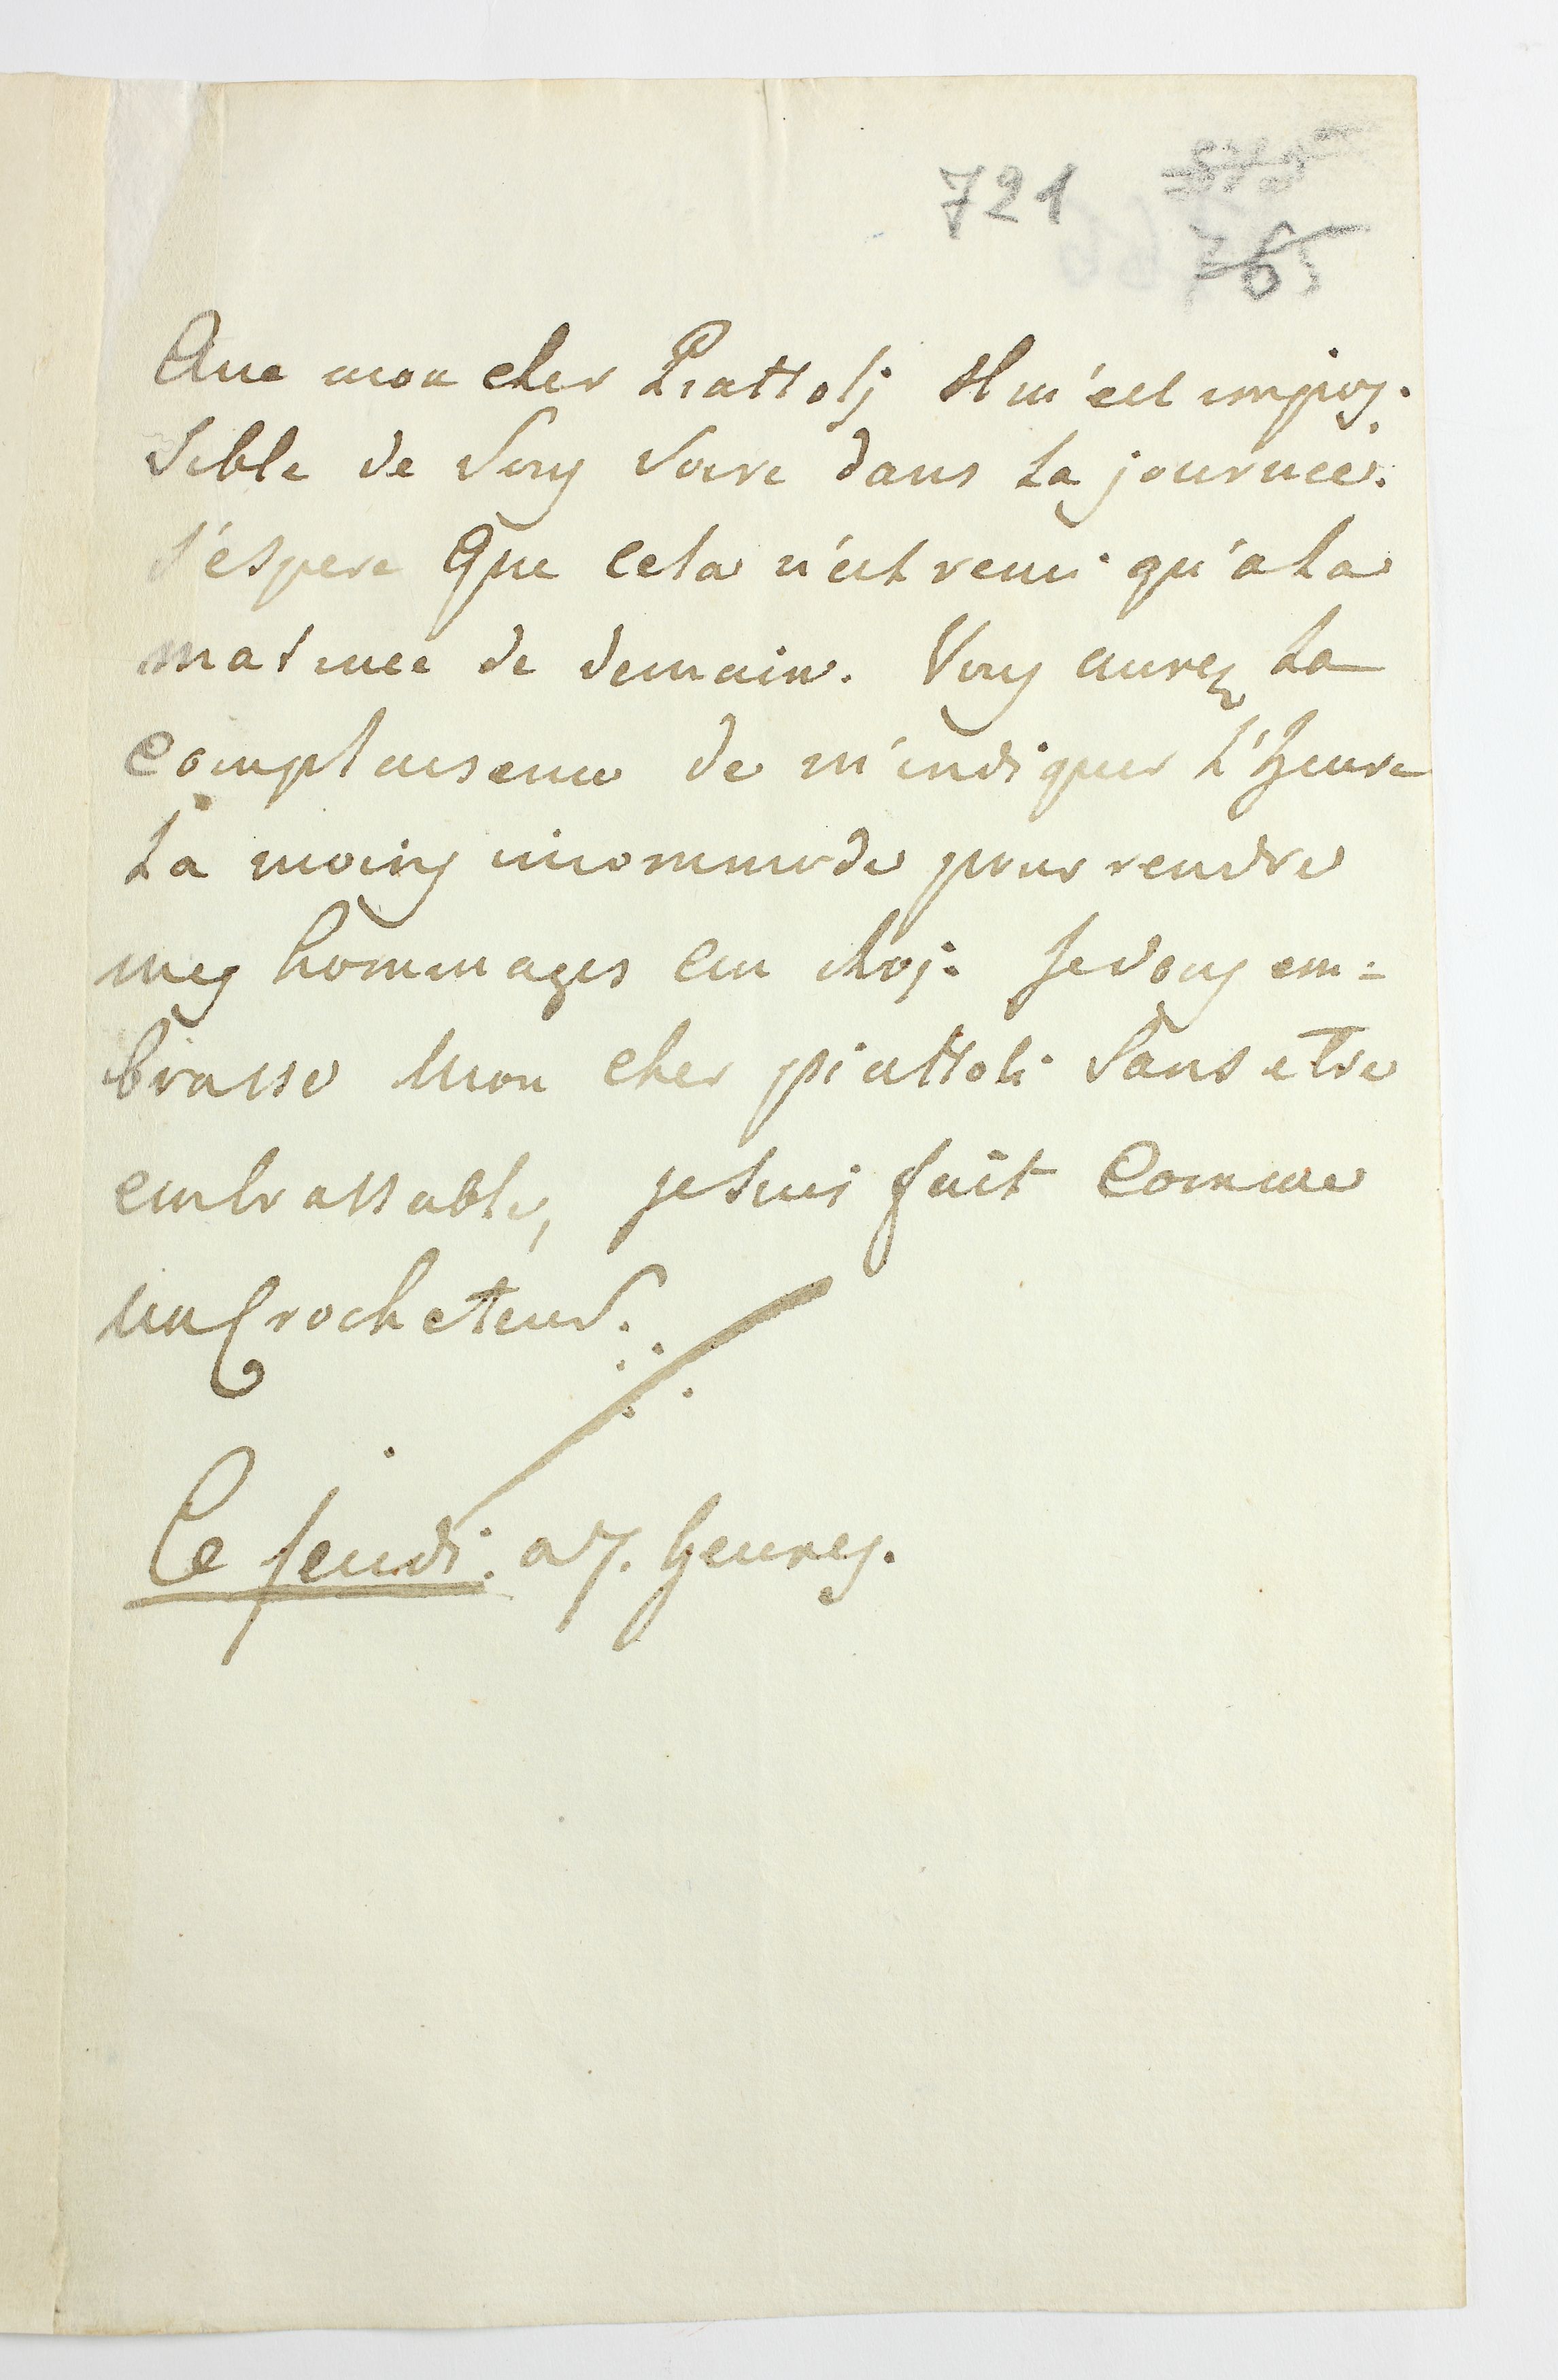 721
765
Ave mon cher Piattolj Il m'est impos.
sible de vous voire dans la journée.
j'espere Que cela n'est remi qu'a la
matinee de demain. Vous aurez la
complaisence de m'indiquer l'heure
la moins incommode pour rendre
mes hommages au Roj. Je vous em=
brasse Mon cher piattoli Sans etre
embrassable, je suis fait comme
un Crocheteur.
Ce jeudi. a 7. heures.